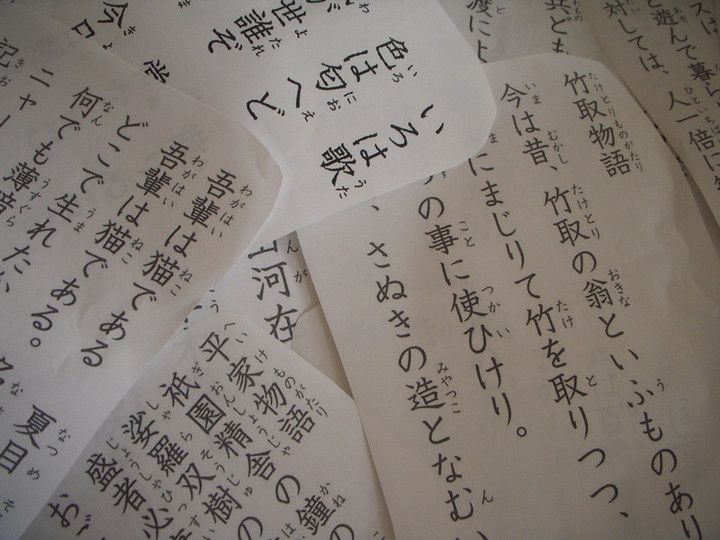 竹取物語
今は昔、竹取の翁といふものあり
にまじりて竹を取りつつ、
の事に使ひけり。
、さぬきの造となむい
いろは歌
色は匂へど
世誰ぞ
吾輩は猫である
吾輩は猫である。
どこで生れたか
何でも薄暗
ニャー
記
夏目
山河在
平家物語
祇園精舎の鐘の
娑羅双樹の
盛者必
お
渡によ
共ども
スは、
と遊んで暮ら
対しては、人一倍に